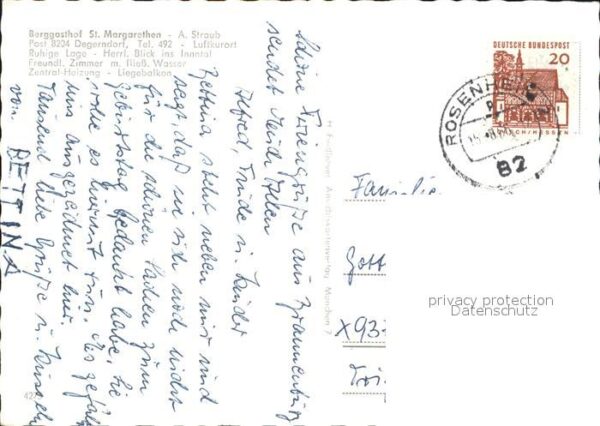 Berggasthof St. Margarethen - A. Straub
Post 8204 Degerndorf, Tel. 492 - Luftkurort
Ruhige Lage - Herrl. Blick ins Inntal
Freundl. Zimmer m. fließ. Wasser
Zentral-Heizung - Liegebalkon
DEUTSCHE BUNDESPOST
20
LORSCH/HESSEN
ROSENHEIM
82
Schöne Feriengrüße aus Brannenburg
sendet Euch allen
Alfred, Trude u. Kinder
Bettina steht neben mir und
sagt, daß sie sich noch nicht
für die schönen Sachen zum
Geburtstag bedankt habe, sie
wolle es hiermit tun. Es gefällt
uns ausgezeichnet hier.
Tausend liebe Grüße u. Küsse
von BETTINA
München 7
Familie
Gott
X93
privacy protection
Datenschutz